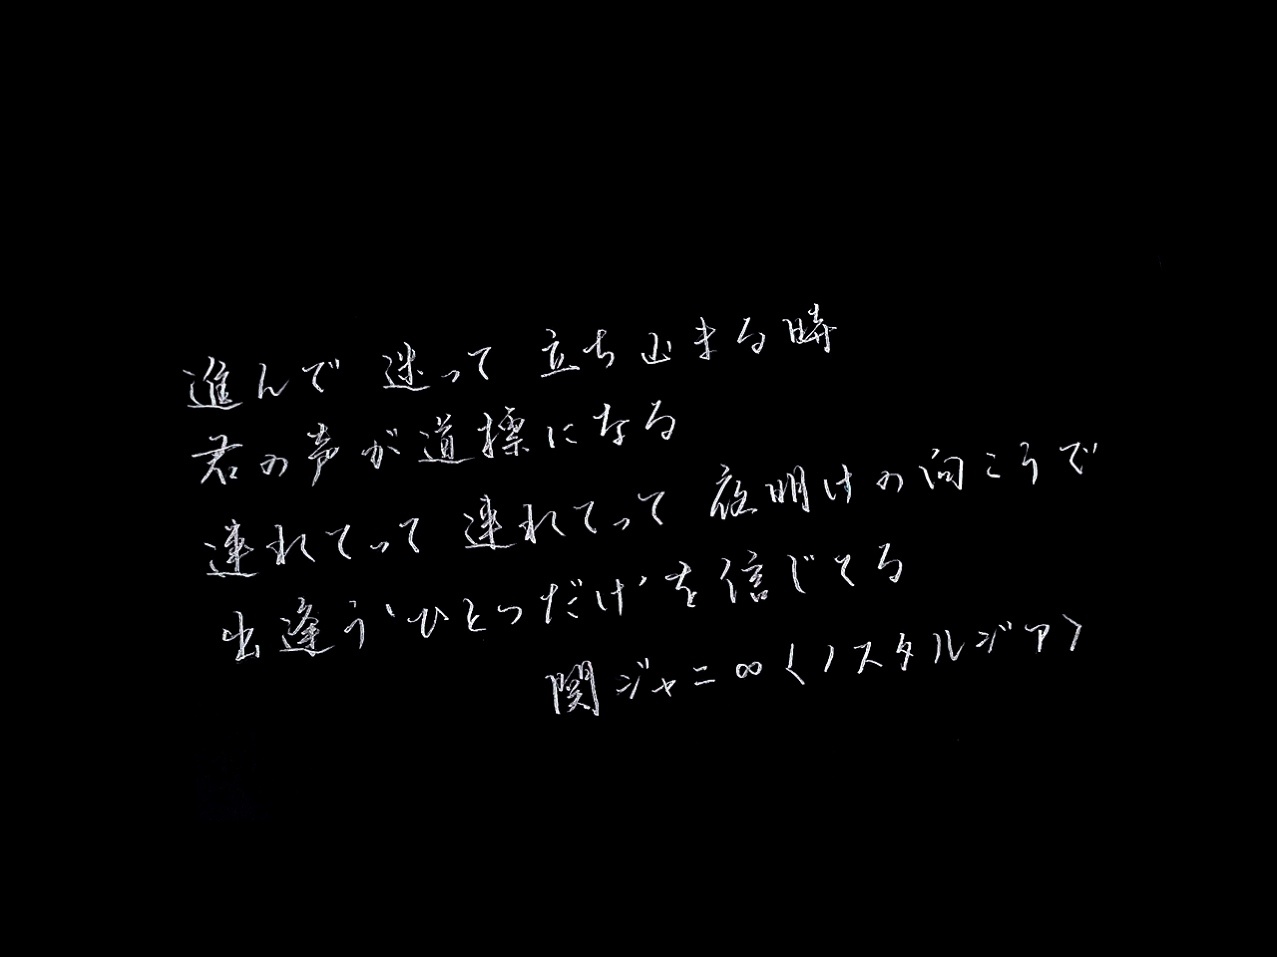 進んで 迷って 立ち止まる時
君の声が道標になる
連れてって 連れてって 夜明けの向こうで
出逢う‘ひとつだけ’を信じてる
関ジャニ∞〈ノスタルジア〉